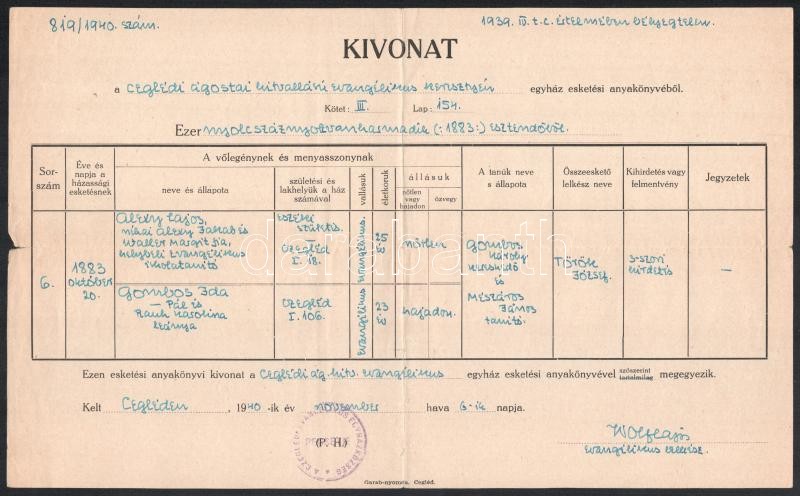 819/1940. szám. 1939. IV. t.c. értelmében bélyegtelen.
KIVONAT
a Ceglédi ágostai hitvallású evangélikus keresztyén egyház esketési anyakönyvéből.
Kötet: III. Lap: 154.
Ezer nyolcszáznyolvanharmadik (:1883:) esztendőről.
Sor-
szám
Éve és
napja a
házassági
esketésnek
A vőlegénynek és menyasszonynak
neve és állapota
születési és
lakhelyük a ház
számával
vallásuk
életkoruk
állásuk
nőtlen
vagy
hajadon
özvegy
A tanúk neve
s állapota
Összeeskető
lelkész neve
Kihirdetés vagy
felmentvény
Jegyzetek
6.
1883
október
20.
Alexy Lajos,
néhai Alexy Jakab és
Waller Margit fia,
helybeli evangélikus
iskolatanító
születés.
Cegléd
I. 18.
evangélikus
25
év
nőtlen
Gombos Ida
— Pál és
Rauh Karolina
leánya
Cegléd
I. 106.
evangélikus
23
év
hajadon.
Gombos
Károly
kereskedő
és
Mészáros
János
tanító.
Török
József.
3-szori
hirdetés
—
Ezen esketési anyakönyvi kivonat a Ceglédi ág. hitv. evangélikus egyház esketési anyakönyvével szószerint
tartalmilag megegyezik.
Kelt Cegléden, 1940-ik év november hava 6-ik napja.
(P. H.)
evangélikus lelkész.
Garab-nyomda, Cegléd.
darabanth